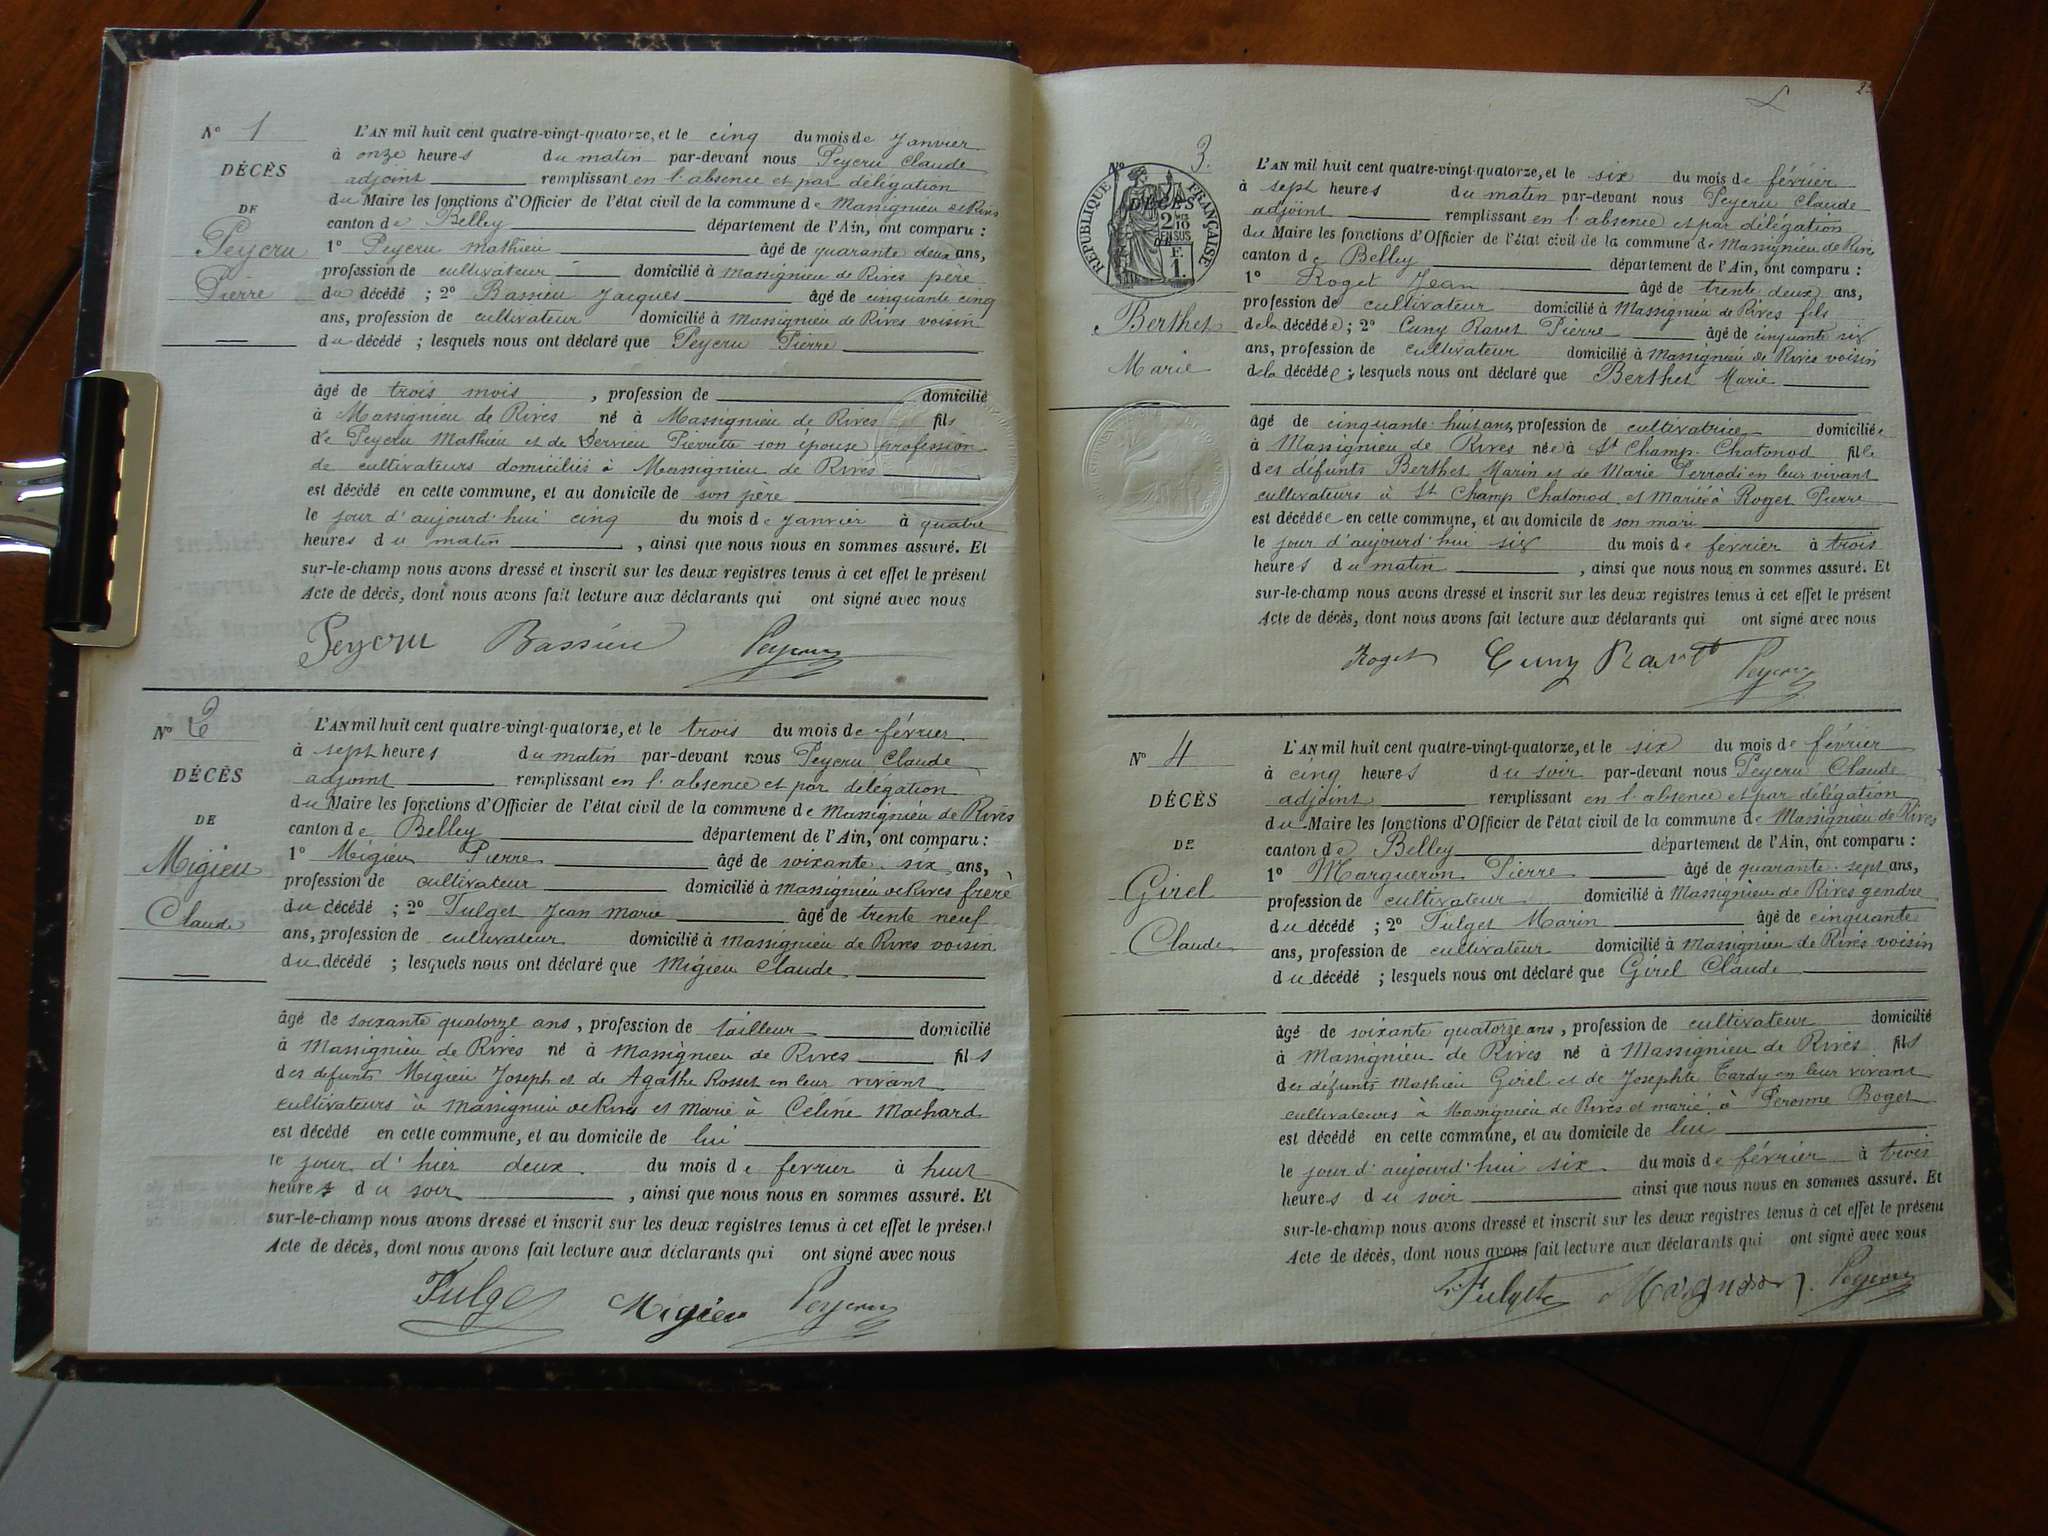 N° 1
DÉCÈS
DE
Peycru
Pierre
L'AN mil huit cent quatre-vingt-quatorze, et le cinq du mois de Janvier
à onze heures du matin par-devant nous Peycru Claude
adjoint remplissant en l'absence et par délégation
du Maire les fonctions d'Officier de l'état civil de la commune de Massignieu de Rives
canton de Belley département de l'Ain, ont comparu :
1° Peycru Mathieu âgé de quarante deux ans,
profession de cultivateur domicilié à Massignieu de Rives père
du décédé ; 2° Bassieu Jacques âgé de cinquante cinq
ans, profession de cultivateur domicilié à Massignieu de Rives voisin
du décédé ; lesquels nous ont déclaré que Peycru Pierre
âgé de trois mois , profession de domicilié
à Massignieu de Rives né à Massignieu de Rives fils
de Peycru Mathieu et de Dervieu Pierrette son épouse profession
de cultivateurs domiciliés à Massignieu de Rives
est décédé en cette commune, et au domicile de son père
le jour d'aujourd'hui cinq du mois de Janvier à quatre
heures du matin , ainsi que nous nous en sommes assuré. Et
sur-le-champ nous avons dressé et inscrit sur les deux registres tenus à cet effet le présent
Acte de décès, dont nous avons fait lecture aux déclarants qui ont signé avec nous
Peycru Bassieu Peycru
N° 2
DÉCÈS
DE
Migieu
Claude
L'AN mil huit cent quatre-vingt-quatorze, et le trois du mois de février
à sept heures du matin par-devant nous Peycru Claude
adjoint remplissant en l'absence et par délégation
du Maire les fonctions d'Officier de l'état civil de la commune de Massignieu de Rives
canton de Belley département de l'Ain, ont comparu :
1° Migieu Pierre âgé de soixante six ans,
profession de cultivateur domicilié à Massignieu de Rives frère
du décédé ; 2° Fulget Jean Marie âgé de trente neuf
ans, profession de cultivateur domicilié à Massignieu de Rives voisin
du décédé ; lesquels nous ont déclaré que Migieu Claude
âgé de soixante quatorze ans , profession de tailleur domicilié
à Massignieu de Rives né à Massignieu de Rives fils
des défunts Migieu Joseph et de Agathe Rosset en leur vivant
cultivateurs à Massignieu de Rives et Marié à Céline Machard
est décédé en cette commune, et au domicile de lui
le jour d'hier deux du mois de février à huit
heures du soir , ainsi que nous nous en sommes assuré. Et
sur-le-champ nous avons dressé et inscrit sur les deux registres tenus à cet effet le présent
Acte de décès, dont nous avons fait lecture aux déclarants qui ont signé avec nous
Fulget Migieu Peycru
2
N° 3.
RÉPUBLIQUE FRANÇAISE
DÉCÈS
2/10 EN SUS
F. 1.
Berthet
Marie
L'AN mil huit cent quatre-vingt-quatorze, et le six du mois de février
à sept heures du matin par-devant nous Peycru Claude
adjoint remplissant en l'absence et par délégation
du Maire les fonctions d'Officier de l'état civil de la commune de Massignieu de Rives
canton de Belley département de l'Ain, ont comparu :
1° Roget Jean âgé de trente deux ans,
profession de cultivateur domicilié à Massignieu de Rives fils
de la décédée ; 2° Cuny Ravet Pierre âgé de cinquante six
ans, profession de cultivateur domicilié à Massignieu de Rives voisin
de la décédée ; lesquels nous ont déclaré que Berthet Marie
âgé de cinquante huit ans, profession de cultivatrice domiciliée
à Massignieu de Rives née à St Champ Chatonod fille
des défunts Berthet Marin et de Marie Perrodi en leur vivant
cultivateurs à St Champ Chatonod et Mariée à Roget Pierre
est décédée en cette commune, et au domicile de son mari
le jour d'aujourd'hui six du mois de février à trois
heures du matin , ainsi que nous nous en sommes assuré. Et
sur-le-champ nous avons dressé et inscrit sur les deux registres tenus à cet effet le présent
Acte de décès, dont nous avons fait lecture aux déclarants qui ont signé avec nous
Roget Cuny Ravet Peycru
N° 4
DÉCÈS
DE
Girel
Claude
L'AN mil huit cent quatre-vingt-quatorze, et le six du mois de février
à cinq heures du soir par-devant nous Peycru Claude
adjoint remplissant en l'absence et par délégation
du Maire les fonctions d'Officier de l'état civil de la commune de Massignieu de Rives
canton de Belley département de l'Ain, ont comparu :
1° Margueron Pierre âgé de quarante sept ans,
profession de cultivateur domicilié à Massignieu de Rives gendre
du décédé ; 2° Fulget Marin âgé de cinquante
ans, profession de cultivateur domicilié à Massignieu de Rives voisin
du décédé ; lesquels nous ont déclaré que Girel Claude
âgé de soixante quatorze ans , profession de cultivateur domicilié
à Massignieu de Rives né à Massignieu de Rives fils
des défunts Mathieu Girel et de Josephte Tardy en leur vivant
cultivateurs à Massignieu de Rives et marié à Peronne Boget
est décédé en cette commune, et au domicile de lui
le jour d'aujourd'hui six du mois de février à trois
heures du soir ainsi que nous nous en sommes assuré. Et
sur-le-champ nous avons dressé et inscrit sur les deux registres tenus à cet effet le présent
Acte de décès, dont nous avons fait lecture aux déclarants qui ont signé avec nous
Fulget Peycru